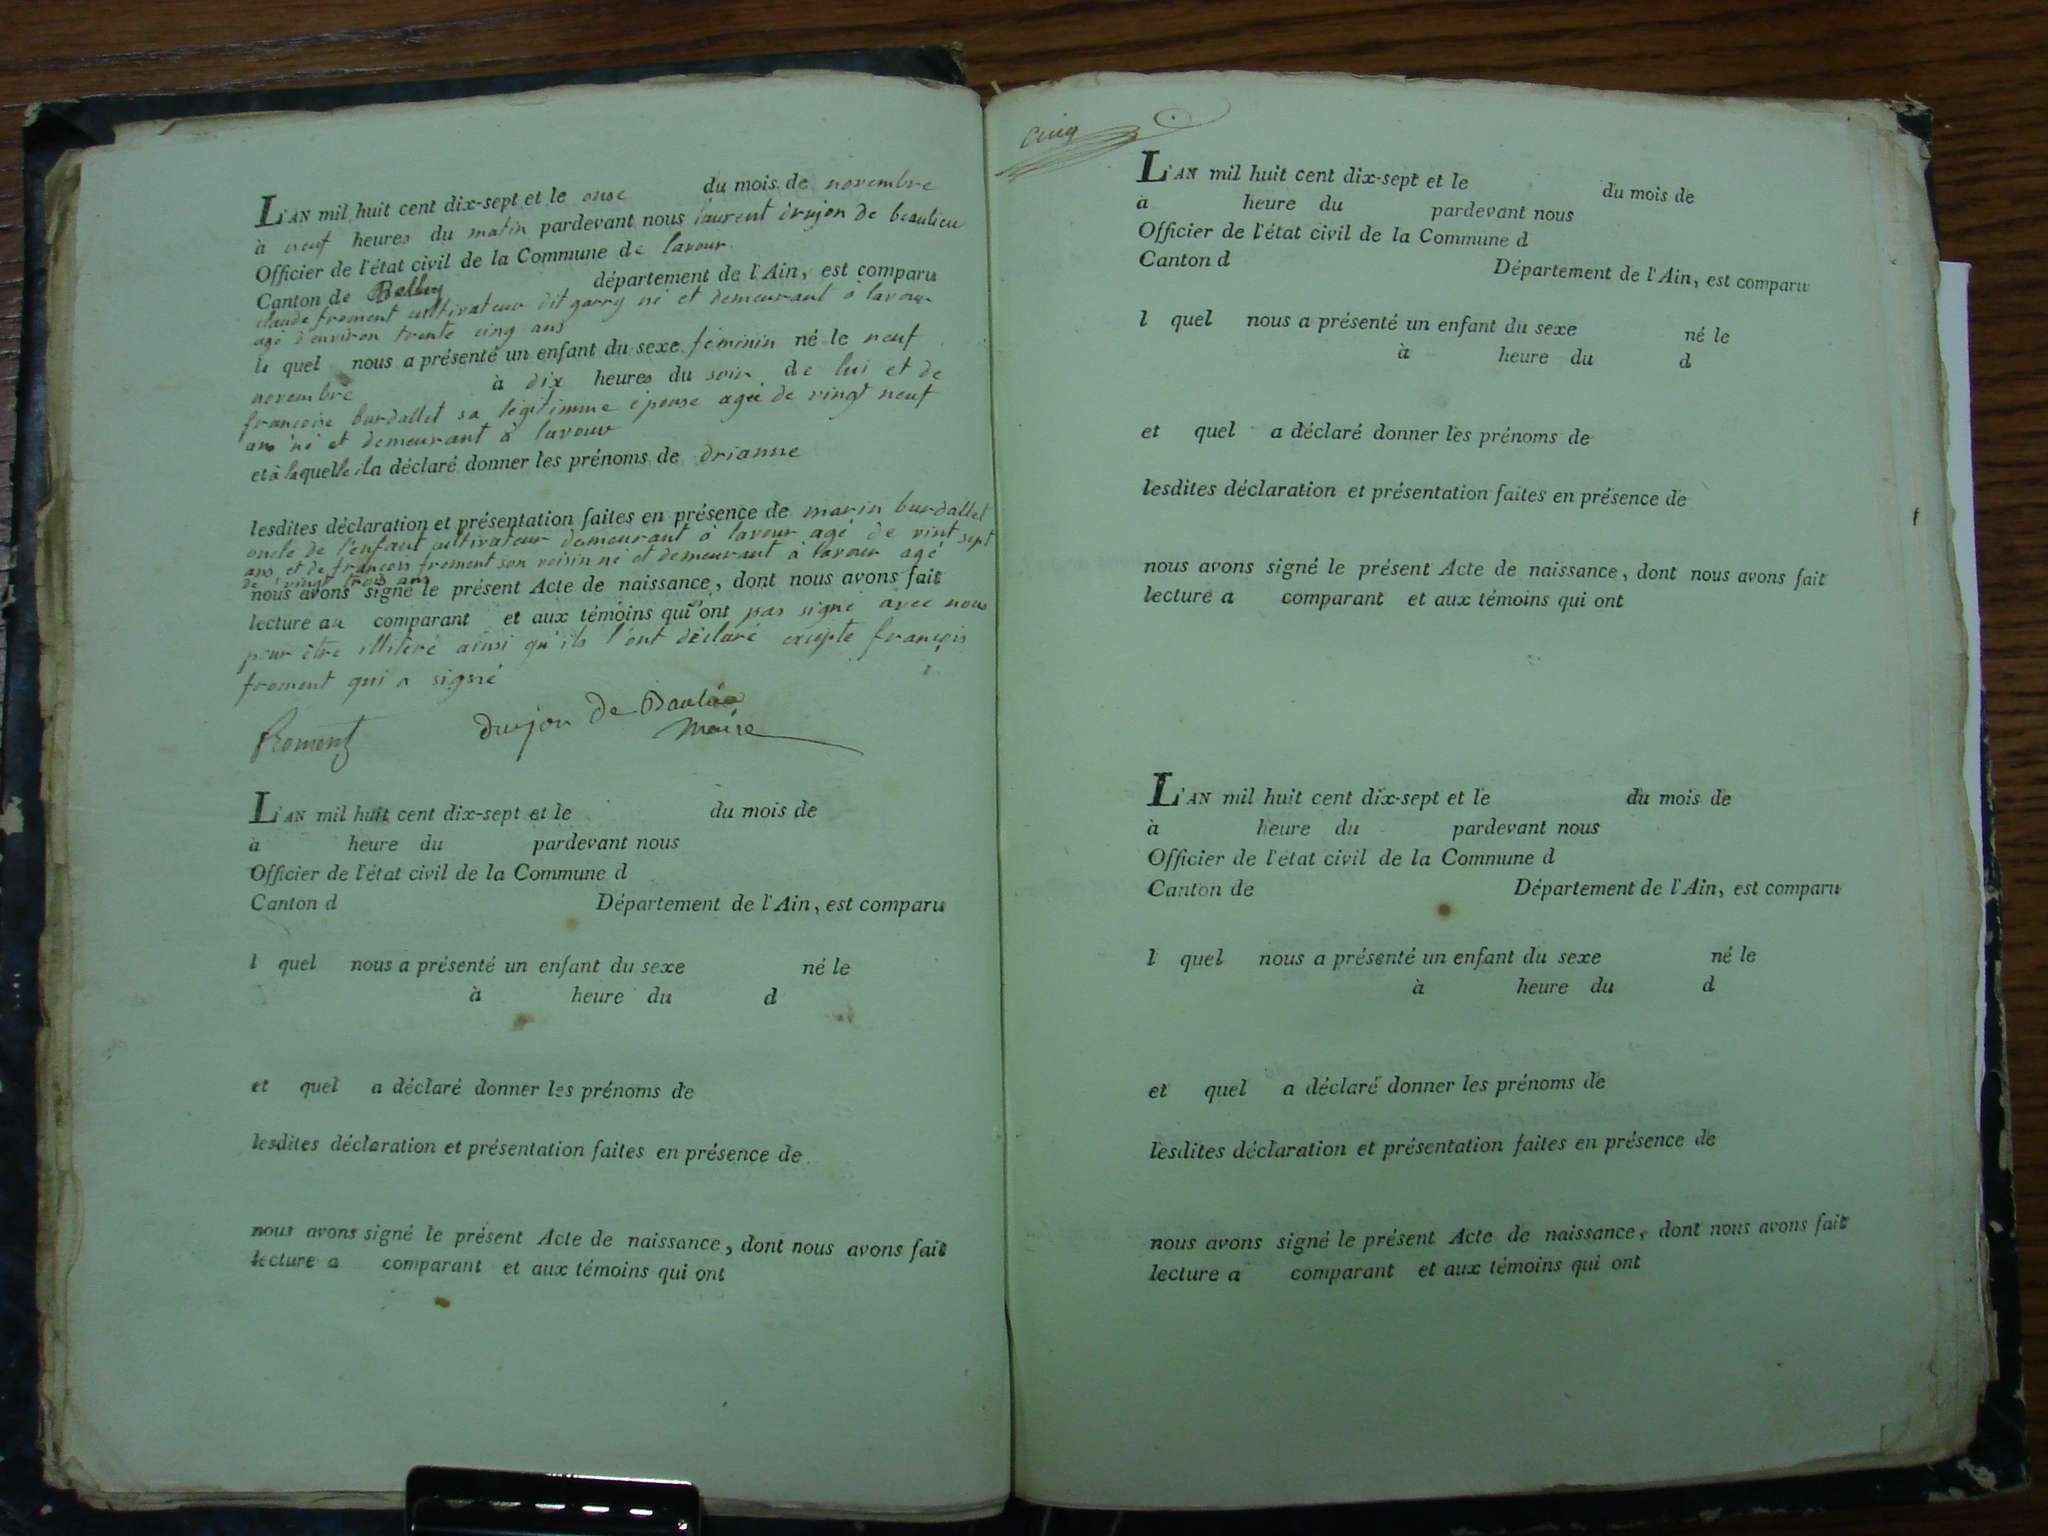 L'AN mil huit cent dix-sept et le onse du mois de novembre
à neuf heures du matin pardevant nous laurent drujon de beaulieu
Officier de l'état civil de la Commune de lavour
Canton de Belley département de l'Ain, est comparu
claude froment cultivateur dit garry né et demeurant à lavour
agé d'environ trente cinq ans
le quel nous a présenté un enfant du sexe féminin né le neuf
novembre à dix heures du soir de lui et de
francoise burdallet sa légitimme épouse agée de vingt neuf
ans né et demeurant à lavour
et à laquelle il a déclaré donner les prénoms de drianne
lesdites déclaration et présentation faites en présence de marin burdallet
oncle de l'enfant cultivateur demeurant à lavour agé de vint sept
ans et de françois froment son voisin né et demeurant à lavour agé
de vingt trois ans
nous avons signé le présent Acte de naissance, dont nous avons fait
lecture au comparant et aux témoins qui ont pas signé avec nous
pour être illitéré ainsi qu'ils l'ont déclaré excepté françois
froment qui a signé
froment drujon De Baulieu
Maire
L'AN mil huit cent dix-sept et le du mois de
à heure du pardevant nous
Officier de l'état civil de la Commune d
Canton d Département de l'Ain, est comparu
l quel nous a présenté un enfant du sexe né le
à heure du d
et quel a déclaré donner les prénoms de
lesdites déclaration et présentation faites en présence de
nous avons signé le présent Acte de naissance, dont nous avons fait
lecture a comparant et aux témoins qui ont
cinq
L'AN mil huit cent dix-sept et le du mois de
à heure du pardevant nous
Officier de l'état civil de la Commune d
Canton d Département de l'Ain, est comparu
l quel nous a présenté un enfant du sexe né le
à heure du d
et quel a déclaré donner les prénoms de
lesdites déclaration et présentation faites en présence de
nous avons signé le présent Acte de naissance, dont nous avons fait
lecture a comparant et aux témoins qui ont
L'AN mil huit cent dix-sept et le du mois de
à heure du pardevant nous
Officier de l'état civil de la Commune d
Canton de Département de l'Ain, est comparu
l quel nous a présenté un enfant du sexe né le
à heure du d
et quel a déclaré donner les prénoms de
lesdites déclaration et présentation faites en présence de
nous avons signé le présent Acte de naissance, dont nous avons fait
lecture a comparant et aux témoins qui ont